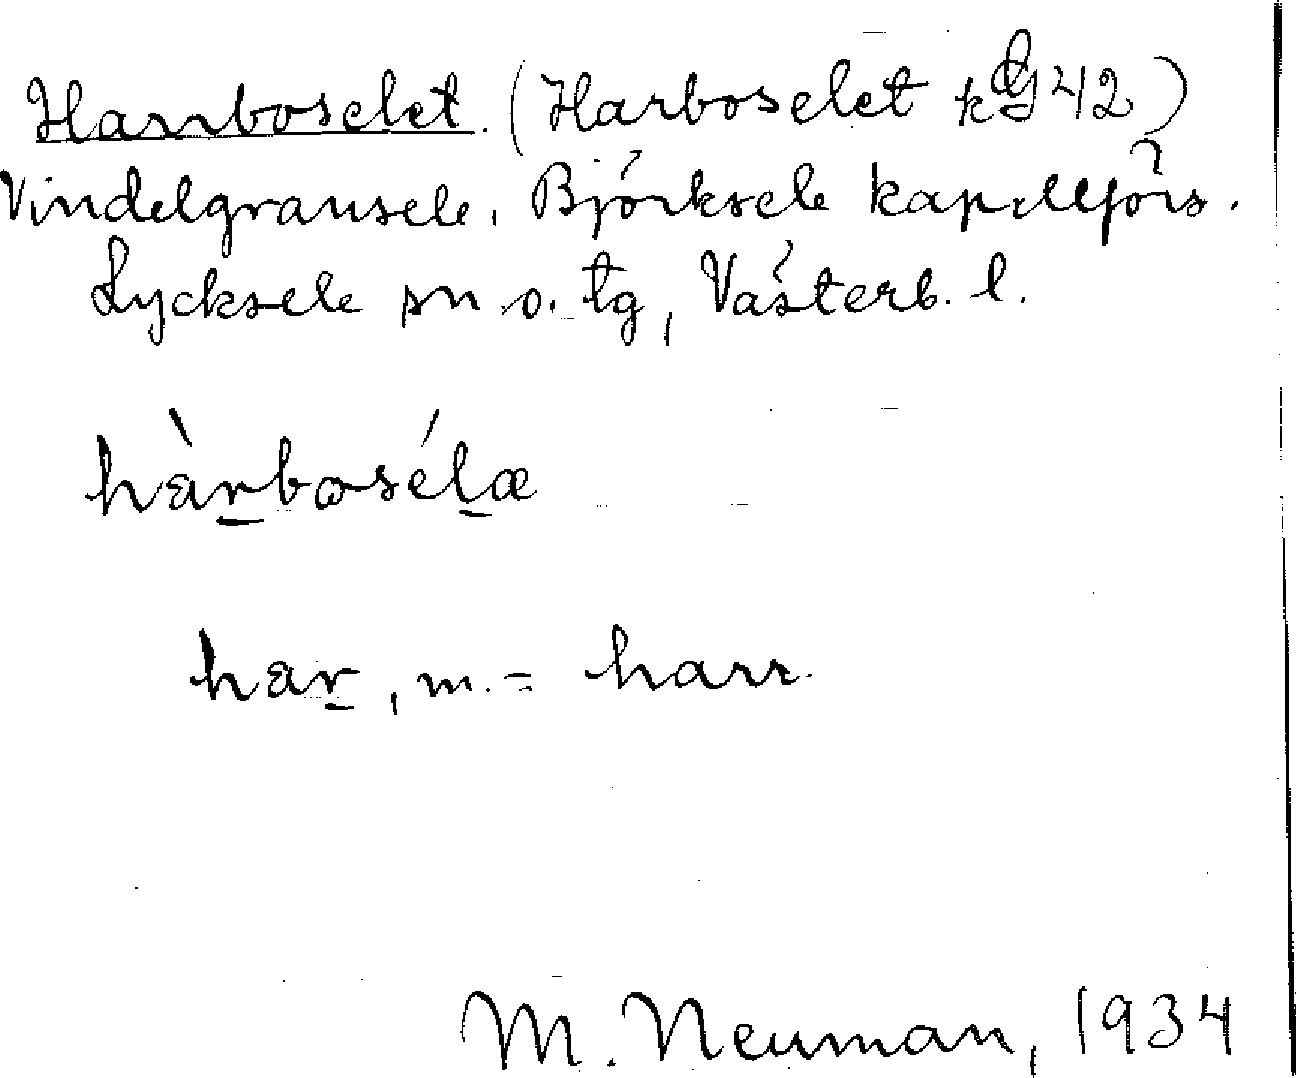 Harrboselet. (Harboselet kG 42)
Vindelgransele, Björksele kapellförs.
Lycksele sn o. tg, Västerb. l.
hàrbosélæ
har, m. = harr.
M. Neuman, 1934